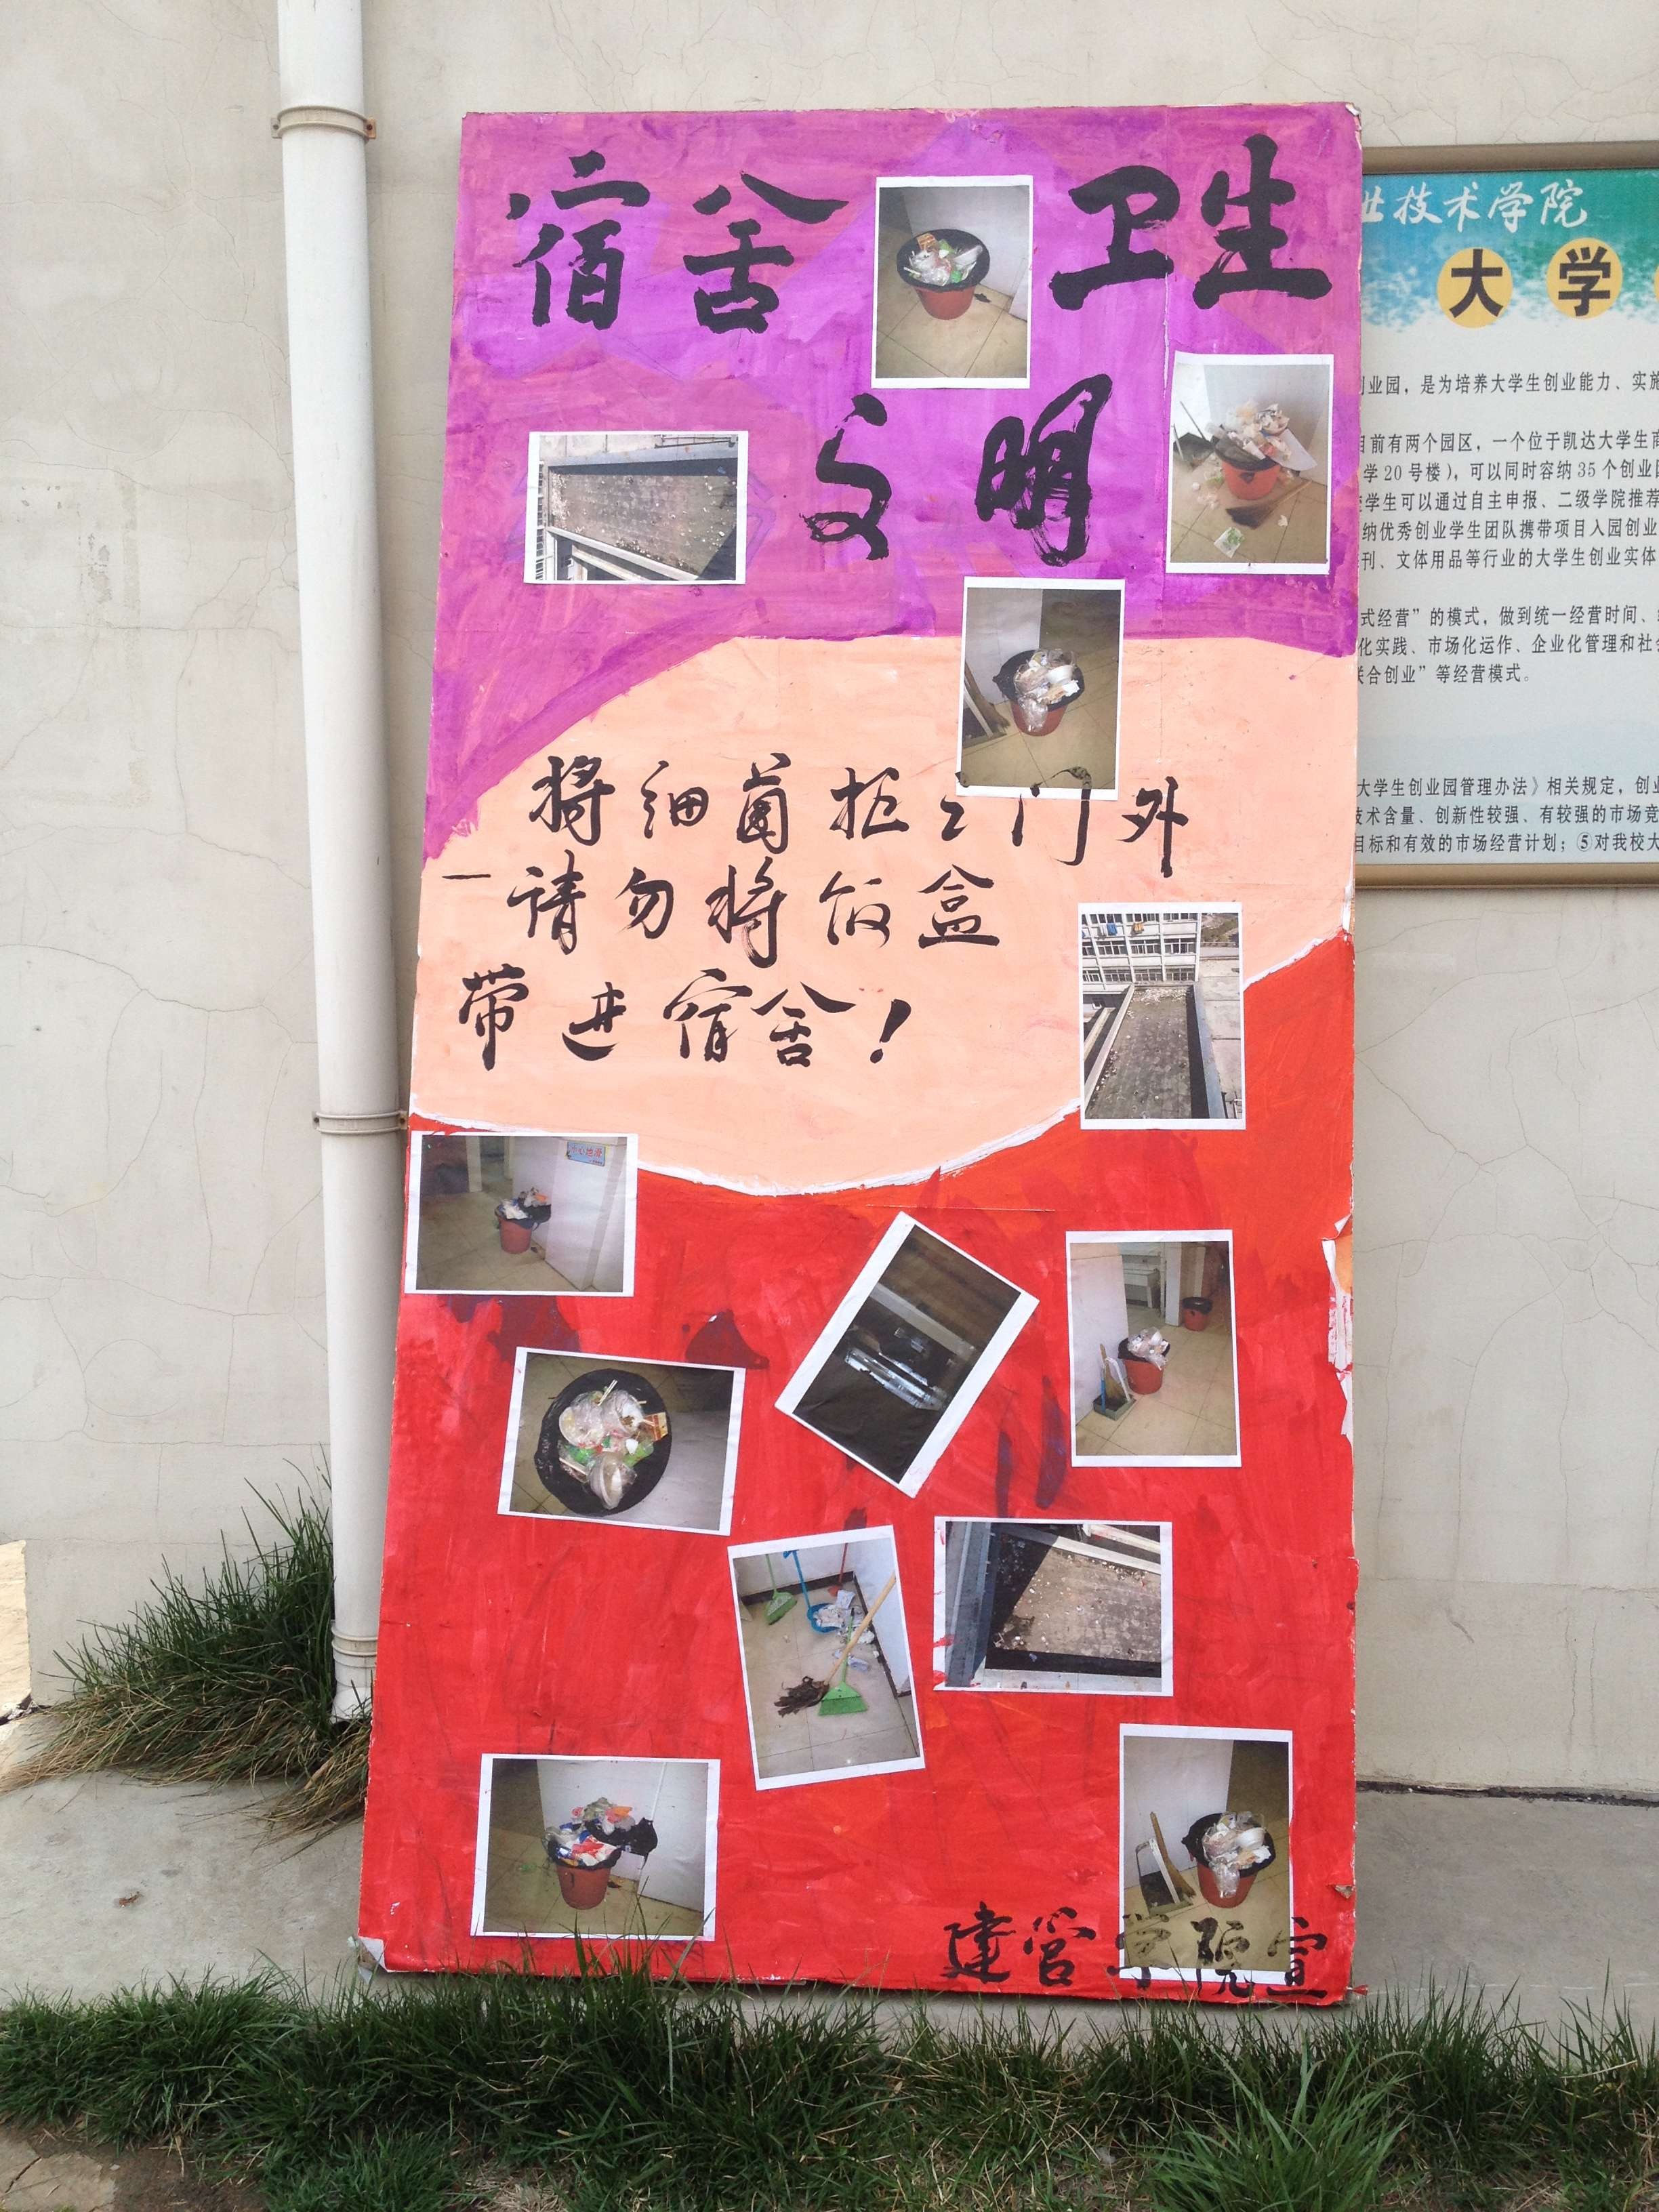 宿舍 卫生
文明
将细菌拒之门外
一请勿将饭盒
带进宿舍！
小心地滑
建管学院宣
业技术学院
大学
创业园，是为培养大学生创业能力、实施
目前有两个园区，一个位于凯达大学生商
学20号楼），可以同时容纳35个创业团
学生可以通过自主申报、二级学院推荐
纳优秀创业学生团队携带项目入园创业
刊、文体用品等行业的大学生创业实体
式经营”的模式，做到统一经营时间、
化实践、市场化运作、企业化管理和社会
联合创业”等经营模式。
大学生创业园管理办法》相关规定，创业
技术含量、创新性较强、有较强的市场竞
目标和有效的市场经营计划；⑤对我校大